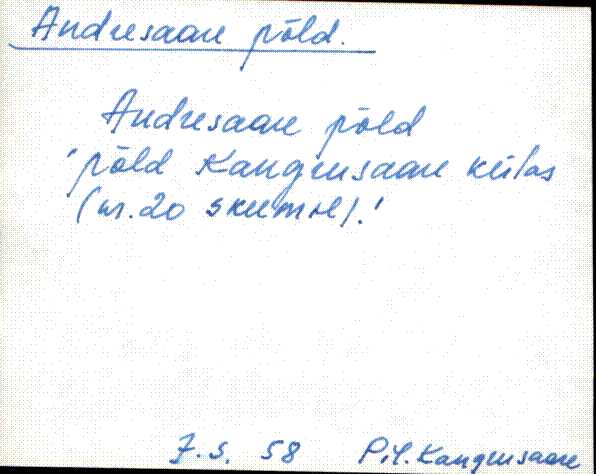 Andresaare põld.
Andresaare põld
'põld Kangrusaare külas
(nr. 20 skeemil).'
J. S. 58 Pil. Kangrusaare